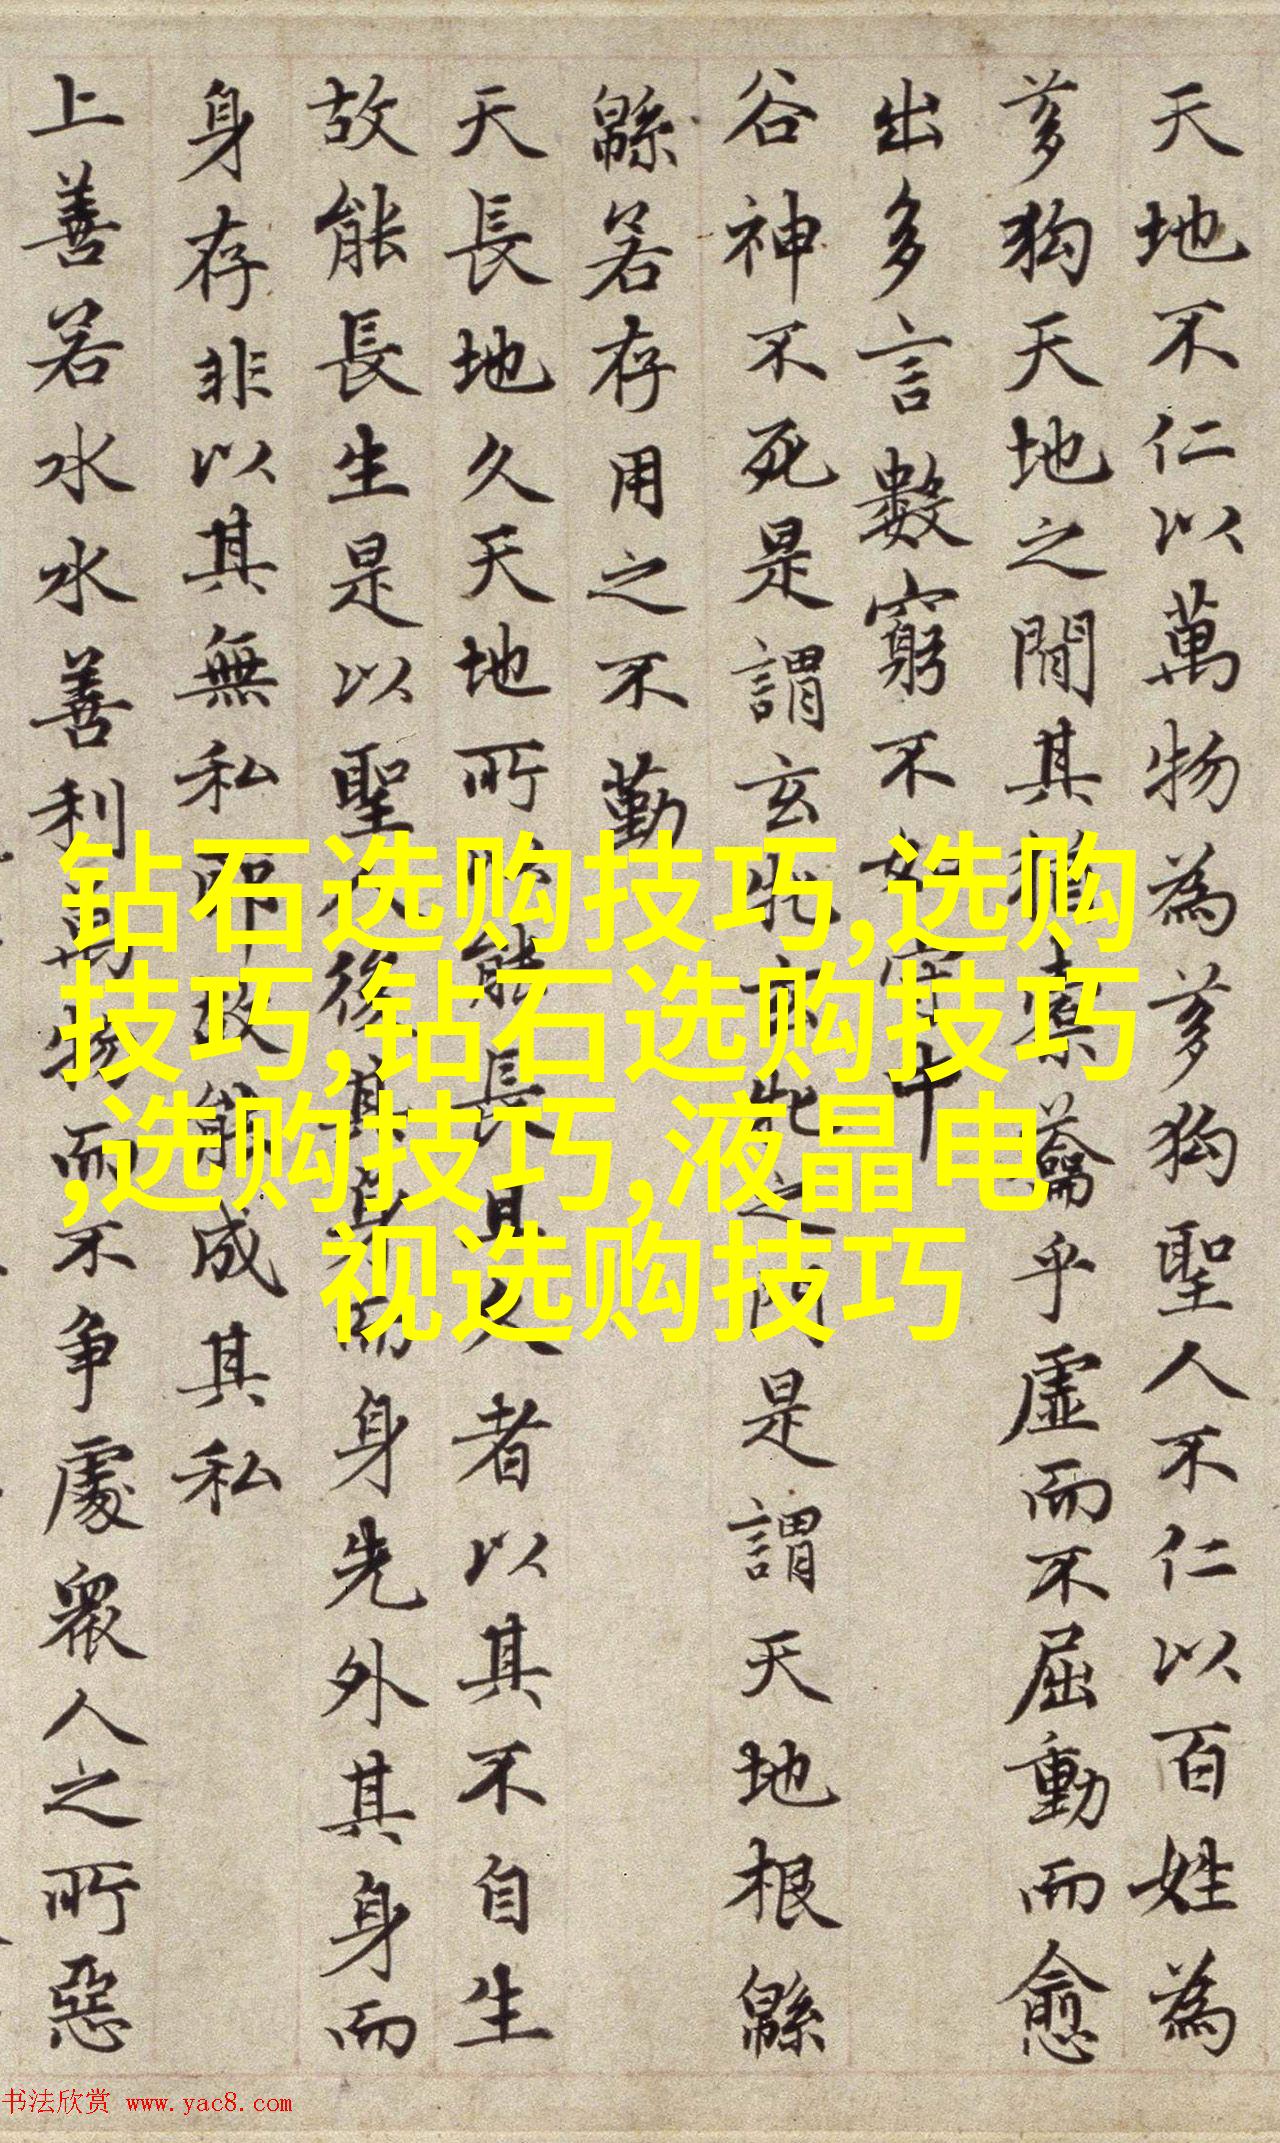 天地不仁以萬物為芻狗聖人不仁以百姓為
芻狗天地之間其猶橐籥乎虛而不屈動而愈
出多言數窮不如守中
谷神不死是謂玄牝玄牝之門是謂天地根緜
緜若存用之不勤
天長地久天地所以能長且久者以其不自生
故能長生是以聖人後其身而身先外其身而
身存非以其無私耶故能成其私
上善若水水善利萬物而不爭處衆人之所惡
钻石选购技巧,选购
技巧,钻石选购技巧
,选购技巧,液晶电
视选购技巧
书法欣赏 www.yac8.com